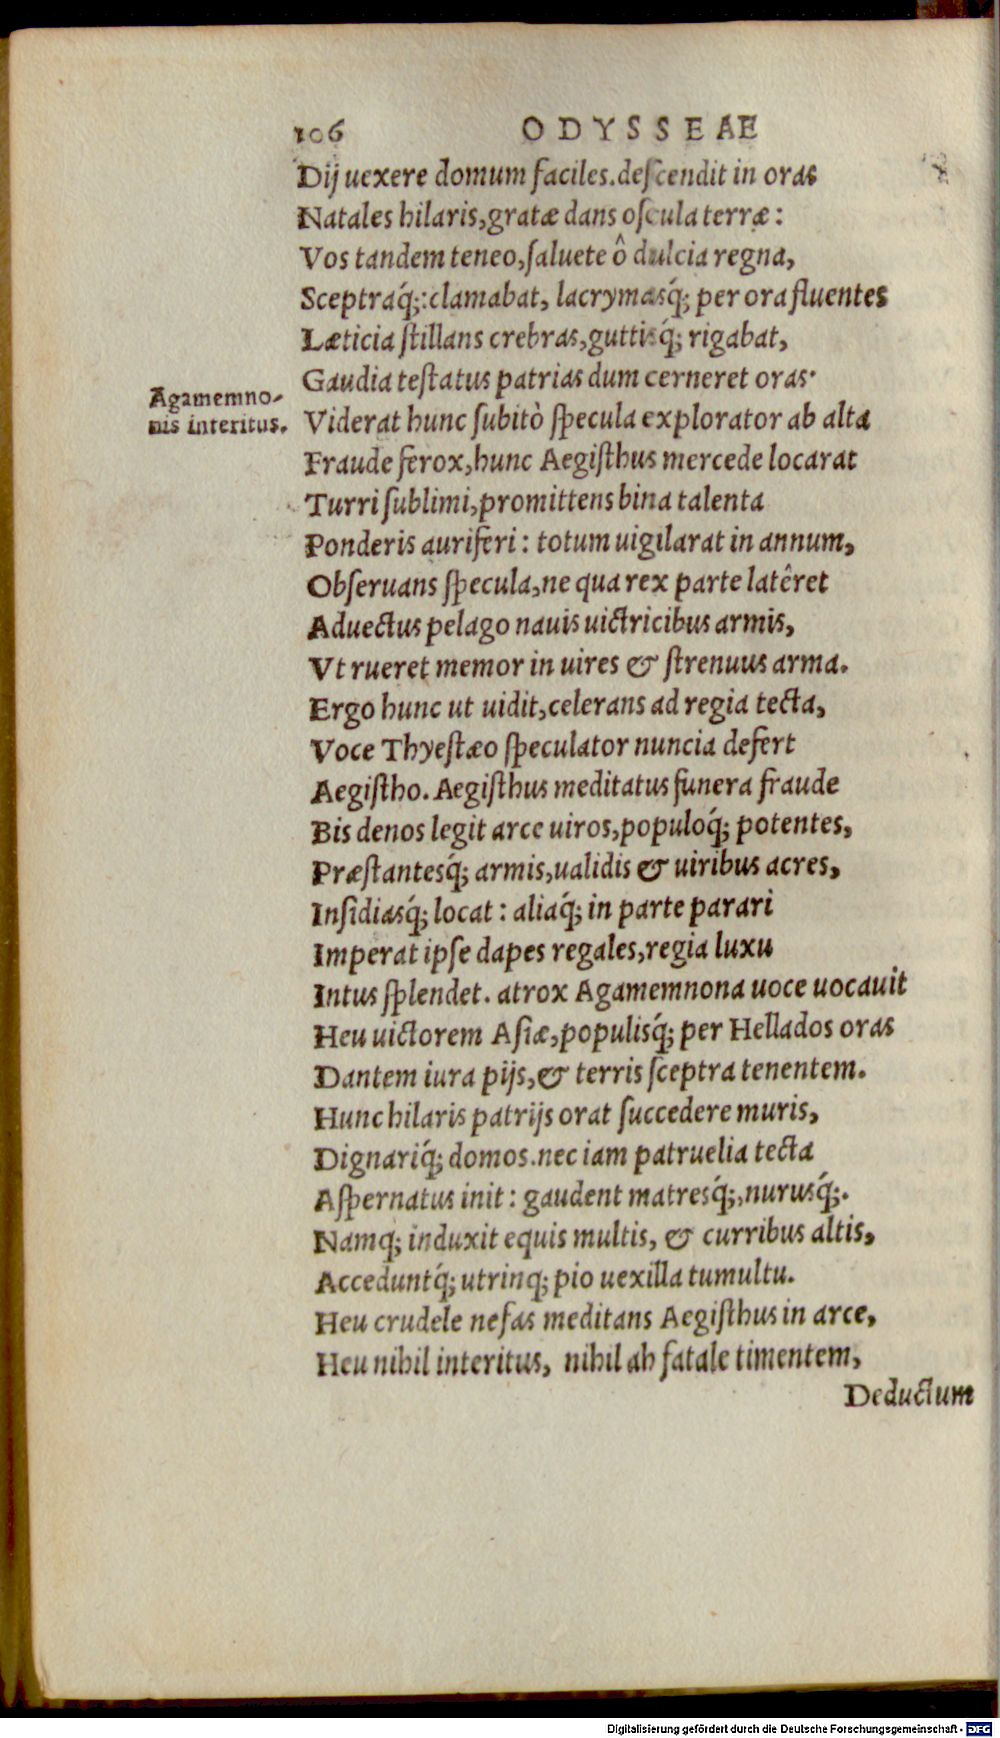 106 ODYSSEAE
Dij uexere domum faciles. descendit in oras
Natales hilaris, gratæ dans oscula terræ:
Vos tandem teneo, saluete ô dulcia regna,
Sceptraq́;: clamabat, lacrymasq́; per ora fluentes
Læticia stillans crebras, guttisq́; rigabat,
Gaudia testatus patrias dum cerneret oras.
Agamemno-
nis interitus.
Viderat hunc subitò specula explorator ab alta
Fraude ferox, hunc Aegisthus mercede locarat
Turri sublimi, promittens bina talenta
Ponderis auriferi: totum uigilarat in annum,
Obseruans specula, ne qua rex parte latêret
Aduectus pelago nauis uictricibus armis,
Vt rueret memor in uires & strenuus arma.
Ergo hunc ut uidit, celerans ad regia tecta,
Voce Thyestæo speculator nuncia defert
Aegistho. Aegisthus meditatus funera fraude
Bis denos legit arce uiros, populoq́; potentes,
Præstantesq́; armis, ualidis & uiribus acres,
Insidiasq́; locat: aliaq́; in parte parari
Imperat ipse dapes regales, regia luxu
Intus splendet. atrox Agamemnona uoce uocauit
Heu uictorem Asiæ, populisq́; per Hellados oras
Dantem iura pijs, & terris sceptra tenentem.
Hunc hilaris patrijs orat succedere muris,
Dignariq́; domos. nec iam patruelia tecta
Aspernatus init: gaudent matresq́;, nurusq́;.
Namq; induxit equis multis, & curribus altis,
Acceduntq́; utrinq; pio uexilla tumultu.
Heu crudele nefas meditans Aegisthus in arce,
Heu nihil interitus, nihil ah fatale timentem,
Deductum
Digitalisierung gefördert durch die Deutsche Forschungsgemeinschaft - DFG